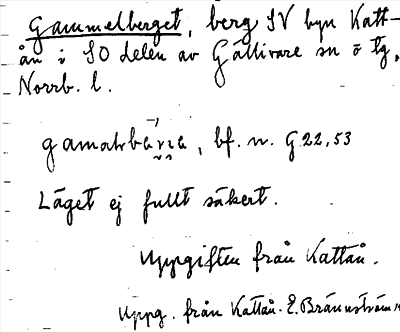 Gammelberget, berg SV byn Katt-
ån i SO delen av Gällivare sn o tg,
Norrb. l.
bf. n. G 22, 53
Läget ej fullt säkert.
Uppgiften från Kattån.
Uppg. från Kattån. E. Brännström